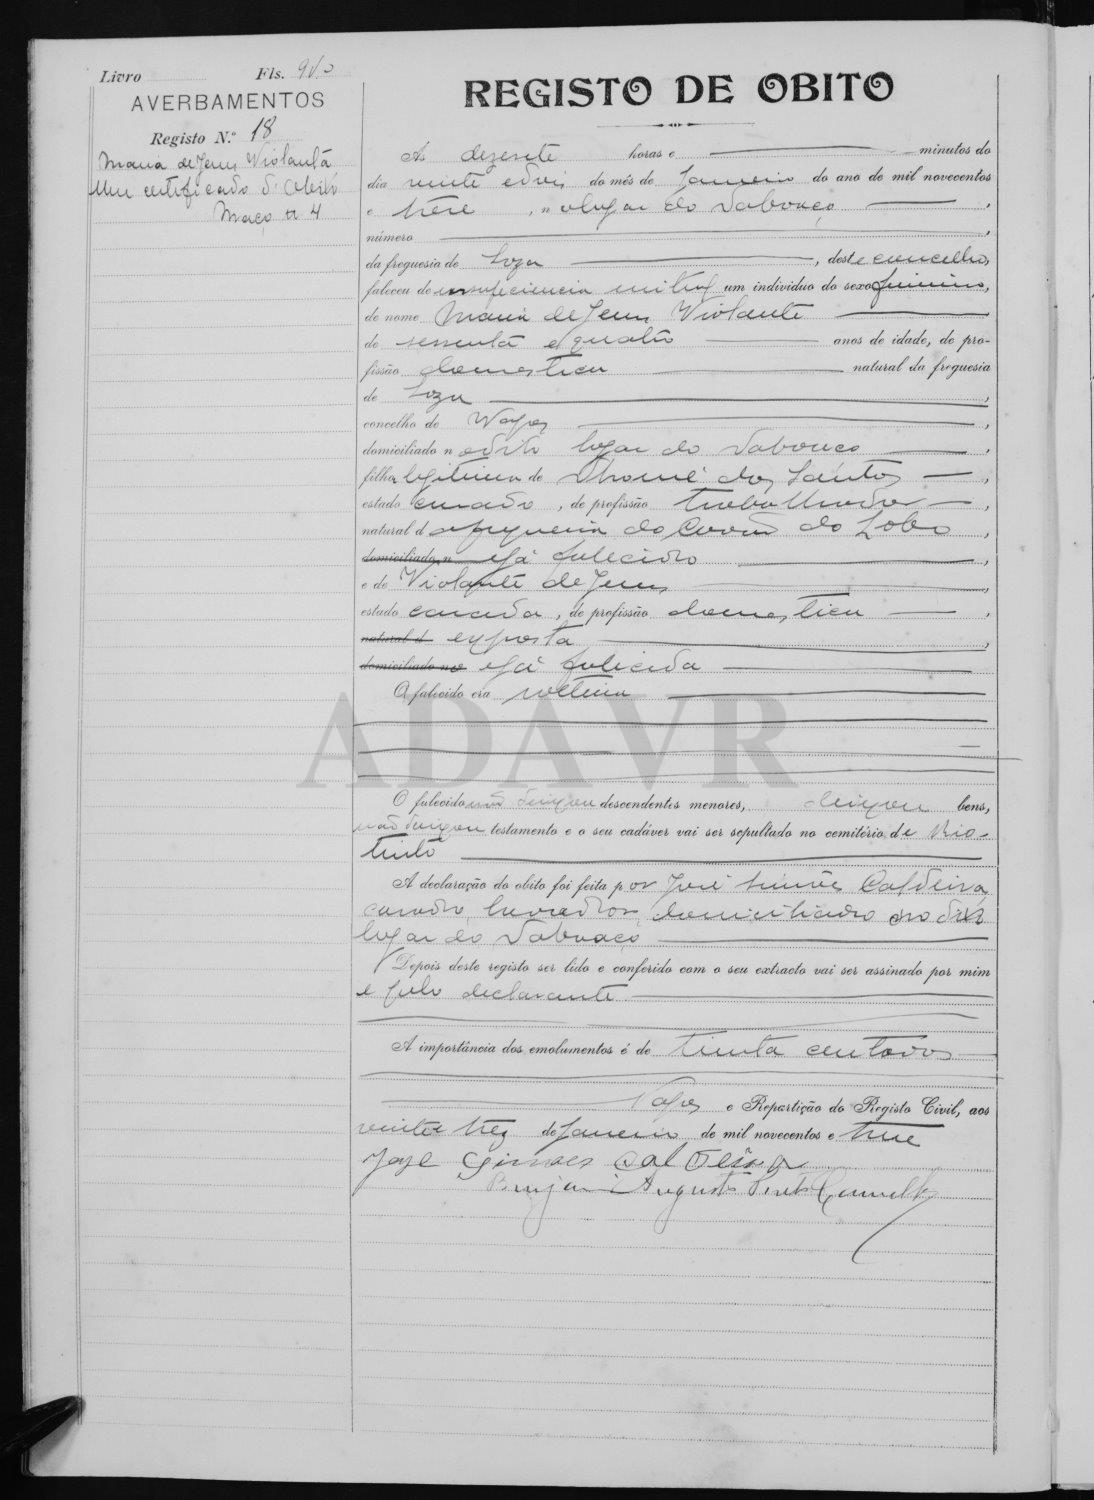 Livro Fls. 9 Vo
AVERBAMENTOS
Registo N.º 18
Maria de Jesus Violanta
Um certificado d'obito
Março n 4
REGISTO DE OBITO
Ás dezesete horas e minutos do
dia vinte e dois do mês de Janeiro do ano de mil novecentos
e treze, no lugar do Salgueiro
número
da freguesia de Soza, deste concelho,
faleceu de insufeciencia mitral um individuo do sexo feminino,
de nome Maria de Jesus Violante
de sessenta e quatro anos de idade, de pro-
fissão domestica natural da freguesia
de Soza
concelho de Vagos
domiciliado no dito logar do
filha legitima de Thomé dos Santos
estado casado, de profissão trabalhador
natural da freguesia do Covão do Lobo
domiciliado n e já falecido
e de Violante de Jesus
estado casada, de profissão domestica
natural d exposta
domiciliado no e já falecida
O falecido era solteira
ADAVR
O falecido não deixou descendentes menores, deixou bens,
não deixou testamento e o seu cadáver vai ser sepultado no cemitério de Rio-
tinto
A declaração do obito foi feita por José Simões Caldeira,
casado, lavrador, domiciliado no dito
logar do
Depois deste registo ser lido e conferido com o seu extracto vai ser assinado por mim
e pelo declarante
A importância dos emolumentos é de trinta centavos
Vagos e Repartição do Registo Civil, aos
vinte e trez de Janeiro de mil novecentos e treze
José Simões Caldeira
Benjamim Augusto